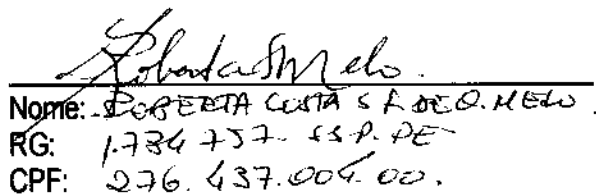 Roberta Melo.
Nome: ROBERTA COSTA S R DE O. MELO.
RG: 1.734 757- SSP. PE
CPF: 276. 437.004.00.